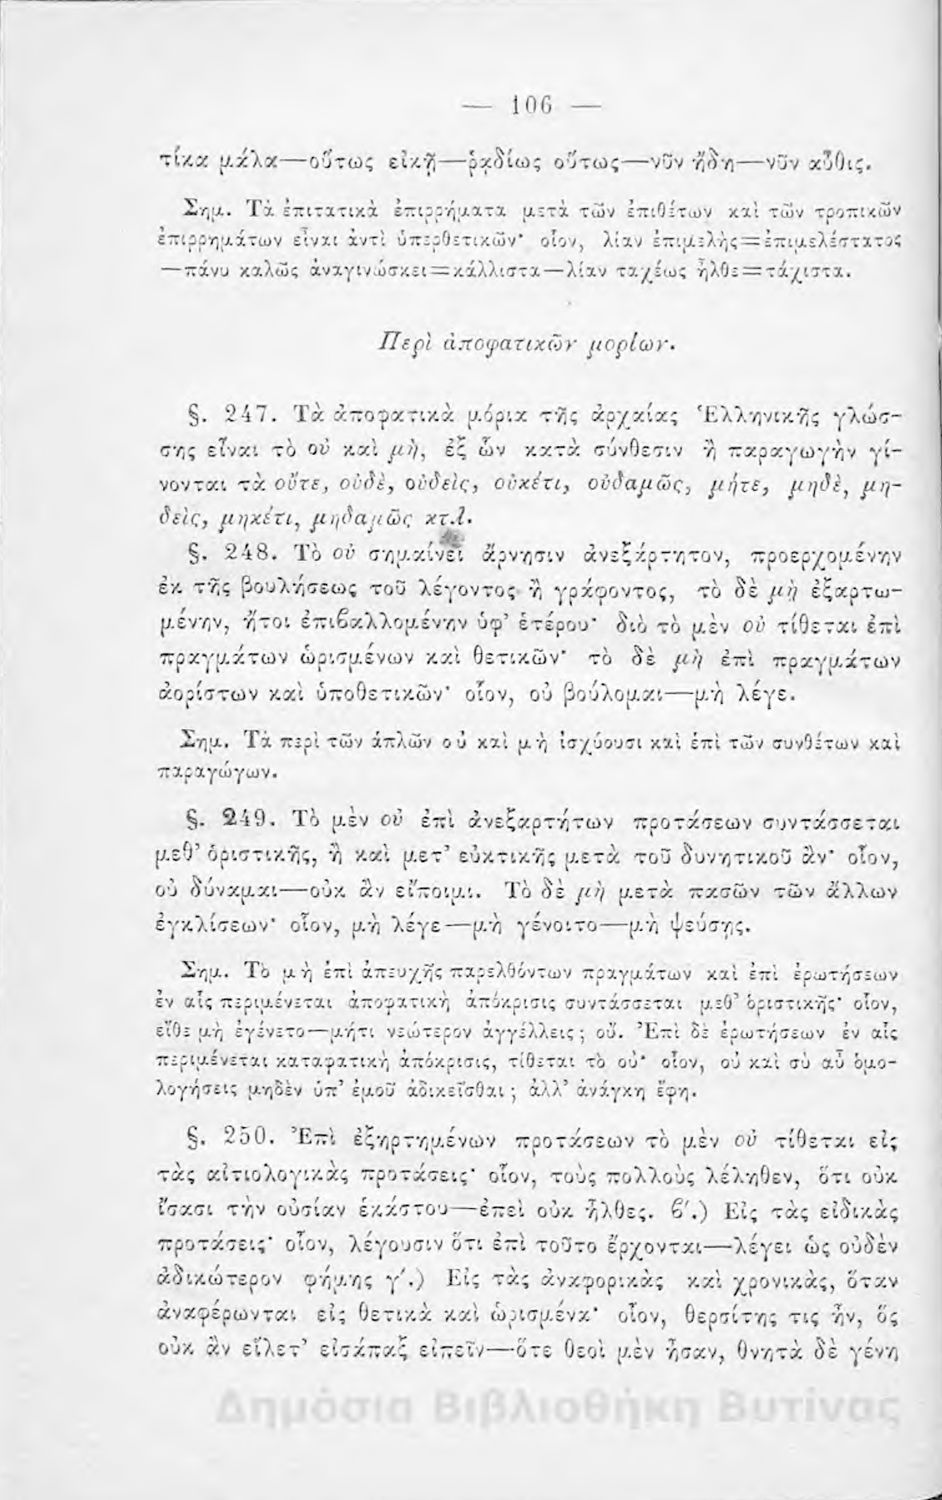 — 106 —
τίκα μάλα—οὕτως εἰκῇ—ῥᾳδίως οὕτως—νῦν ἤδη—νῦν αὖθις.
Σημ. Τὰ ἐπιτατικὰ ἐπιρρήματα μετὰ τῶν ἐπιθέτων καὶ τῶν τροπικῶν
ἐπιρρημάτων εἶναι ἀντὶ ὑπερθετικῶν· οἷον, λίαν ἐπιμελὴς=ἐπιμελέστατος
—πάνυ καλῶς ἀναγινώσκει=κάλλιστα—λίαν ταχέως ἦλθε=τάχιστα.
Περὶ ἀποφατικῶν μορίων.
§. 247. Τὰ ἀποφατικὰ μόρια τῆς ἀρχαίας Ἑλληνικῆς γλώσ-
σης εἶναι τὸ οὐ καὶ μὴ, ἐξ ὧν κατὰ σύνθεσιν ἢ παραγωγὴν γί-
νονται τὰ οὔτε, οὐδὲ, οὐδεὶς, οὐκέτι, οὐδαμῶς, μήτε, μηδὲ, μη-
δεὶς, μηκέτι, μηδαμῶς κτλ.
§. 248. Τὸ οὐ σημαίνει ἄρνησιν ἀνεξάρτητον, προερχομένην
ἐκ τῆς βουλήσεως τοῦ λέγοντος ἢ γράφοντος, τὸ δὲ μὴ ἐξαρτω-
μένην, ἤτοι ἐπιβαλλομένην ὑφ’ ἑτέρου· διὸ τὸ μὲν οὐ τίθεται ἐπὶ
πραγμάτων ὡρισμένων καὶ θετικῶν· τὸ δὲ μὴ ἐπὶ πραγμάτων
ἀορίστων καὶ ὑποθετικῶν· οἷον, οὐ βούλομαι—μὴ λέγε.
Σημ. Τὰ περὶ τῶν ἁπλῶν οὐ καὶ μὴ ἰσχύουσι καὶ ἐπὶ τῶν συνθέτων καὶ
παραγώγων.
§. 249. Τὸ μὲν οὐ ἐπὶ ἀνεξαρτήτων προτάσεων συντάσσεται
μεθ’ ὁριστικῆς, ἢ καὶ μετ’ εὐκτικῆς μετὰ τοῦ δυνητικοῦ ἄν· οἷον,
οὐ δύναμαι—οὐκ ἂν εἴποιμι. Τὸ δὲ μὴ μετὰ πασῶν τῶν ἄλλων
ἐγκλίσεων· οἷον, μὴ λέγε—μὴ γένοιτο—μὴ ψεύσῃς.
Σημ. Τὸ μὴ ἐπὶ ἀπευχῆς παρελθόντων πραγμάτων καὶ ἐπὶ ἐρωτήσεων
ἐν αἷς περιμένεται ἀποφατικὴ ἀπόκρισις συντάσσεται μεθ’ ὁριστικῆς· οἷον,
εἴθε μὴ ἐγένετο—μήτι νεώτερον ἀγγέλλεις; οὔ. Ἐπὶ δὲ ἐρωτήσεων ἐν αἷς
περιμένεται καταφατικὴ ἀπόκρισις, τίθεται τὸ οὐ· οἷον, οὐ καὶ σὺ αὖ ὁμο-
λογήσεις μηδὲν ὑπ’ ἐμοῦ ἀδικεῖσθαι; ἀλλ’ ἀνάγκη ἔφη.
§. 250. Ἐπὶ ἐξηρτημένων προτάσεων τὸ μὲν οὐ τίθεται εἰς
τὰς αἰτιολογικὰς προτάσεις· οἷον, τοὺς πολλοὺς λέληθεν, ὅτι οὐκ
ἴσασι τὴν οὐσίαν ἑκάστου—ἐπεὶ οὐκ ἦλθες. β′.) Εἰς τὰς εἰδικὰς
προτάσεις· οἷον, λέγουσιν ὅτι ἐπὶ τοῦτο ἔρχονται—λέγει ὡς οὐδὲν
ἀδικώτερον φήμης γ′.) Εἰς τὰς ἀναφορικὰς καὶ χρονικὰς, ὅταν
ἀναφέρωνται εἰς θετικὰ καὶ ὡρισμένα· οἷον, θερσίτης τις ἦν, ὃς
οὐκ ἂν εἵλετ’ εἰσάπαξ εἰπεῖν—ὅτε θεοὶ μὲν ἦσαν, θνητὰ δὲ γένη
Δημόσια Βιβλιοθήκη Βυτίνας